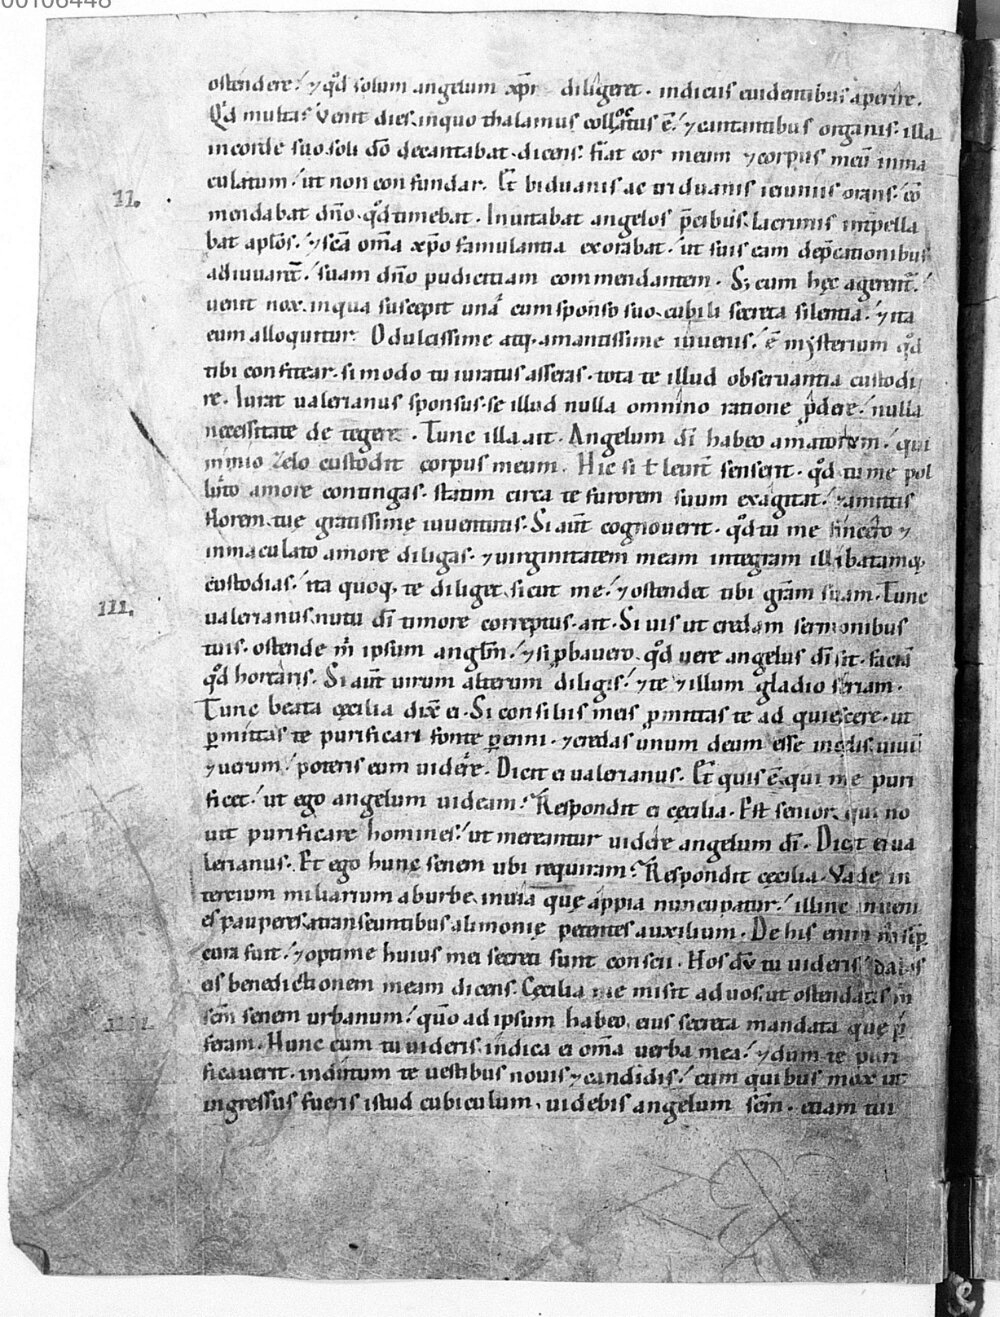 00106448
ostendere. ⁊ qđ solum angelum xp̄i diligeret. indiciis euidentibus aperire.
Qd multa? Venit dies. in quo thalamus collocatus ē. ⁊ cantantibus organis. illa
in corde suo soli dō decantabat. dicens. fiat cor meum ⁊ corpus meū inma
culatum. ut non confundar. Et biduanis ac triduanis ieiuniis orans. cō
mendabat dn̄o. qđ timebat. Inuitabat angelos p̄cibus. lacrimis inpella
bat apłos. ⁊ sc̄a om̄a xp̄o famulantia exorabat. ut suis eam dep̄cationibus
II.
adiuuarent. suam dn̄o pudicitiam commendantem. S; cum hęc agerent.
uenit nox. in qua suscepit una cum sponso suo. cubili secreta silentia. ⁊ ita
eum alloquitur. O dulcissime atq. amantissime iuuenis. ē mysterium qđ
tibi confitear. si modo tu iuratus asseras. tota te illud obseruantia custodi
re. Iurat ualerianus sponsus. se illud nulla omnino ratione p̄dere. nulla
necessitate detegere. Tunc illa ait. Angelum dī habeo amatorem. qui
nimio zelo custodit corpus meum. Hic si ł leuit̄ senserit. qđ tu me pol
luto amore contingas. statim circa te furorem suum exagitat. ⁊ amittis
florem tuę gratissimę iuuentutis. Si aut̄ cognouerit. qđ tu me sincero ⁊
inmaculato amore diligas. ⁊ uirginitatem meam integram illibatamq.
custodias. ita quoq. te diliget. sicut me. ⁊ ostendet tibi grām suam. Tunc
III.
ualerianus. nutu dī timore correptus. ait. Si uis ut credam sermonibus
tuis. ostende m̄ ipsum angłm. ⁊ si pbauero. qđ uere angelus dī sit. faciā
qđ hortaris. Si aut̄ uirum alterum diligis. ⁊ te ⁊ illum gladio feriam.
Tunc beata cęcilia dix̄ ei. Si consiliis meis pmittas te adquiescere. ut
pmittas te purificari fonte perenni. ⁊ credas unum deum esse in cęlis. uiuū
⁊ uerum. poteris eum uidere. Dicit ei ualerianus. Et quis ē. qui me puri
ficet. ut ego angelum uideam? Respondit ei cęcilia. Est senior. qui no
uit purificare homines. ut mereantur uidere angelum dī. Dicit ei ua
lerianus. Et ego hunc senem ubi requiram? Respondit cęcilia. Vade in
tercium miliarium ab urbe. in uia quę appia nuncupatur. illinc inueni
es pauperes. a transeuntibus alimonię petentes auxilium. De his enim m̄ semp
cura fuit. ⁊ optime huius mei secreti sunt conscii. Hos dū tu uideris. dabis
eis benedictionem meam dicens. Cęcilia me misit ad uos. ut ostendatis m̄
IIII.
sc̄m senem urbanum. quō ad ipsum habeo eius secreta mandata quę p̄
feram. Hunc cum tu uideris. indica ei om̄a uerba mea. ⁊ dum te puri
ficauerit. induitum te uestibus nouis ⁊ candidis. cum quibus mox ut
ingressus fueris istud cubiculum. uidebis angelum sc̄m. etiam tui